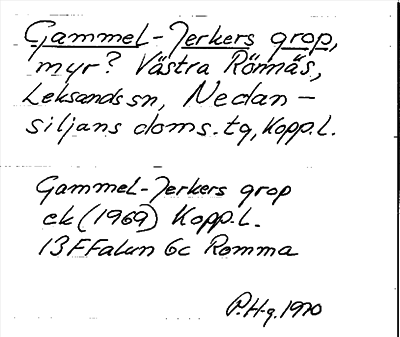 Gammel-Jerkers grop,
myr? Västra Rönnäs,
Leksands sn, Nedan-
siljans doms.tg, Kopp.l.
Gammel-Jerkers grop
ek (1969) Kopp.l.
13F Falun 6c Romma
P.H-g. 1970